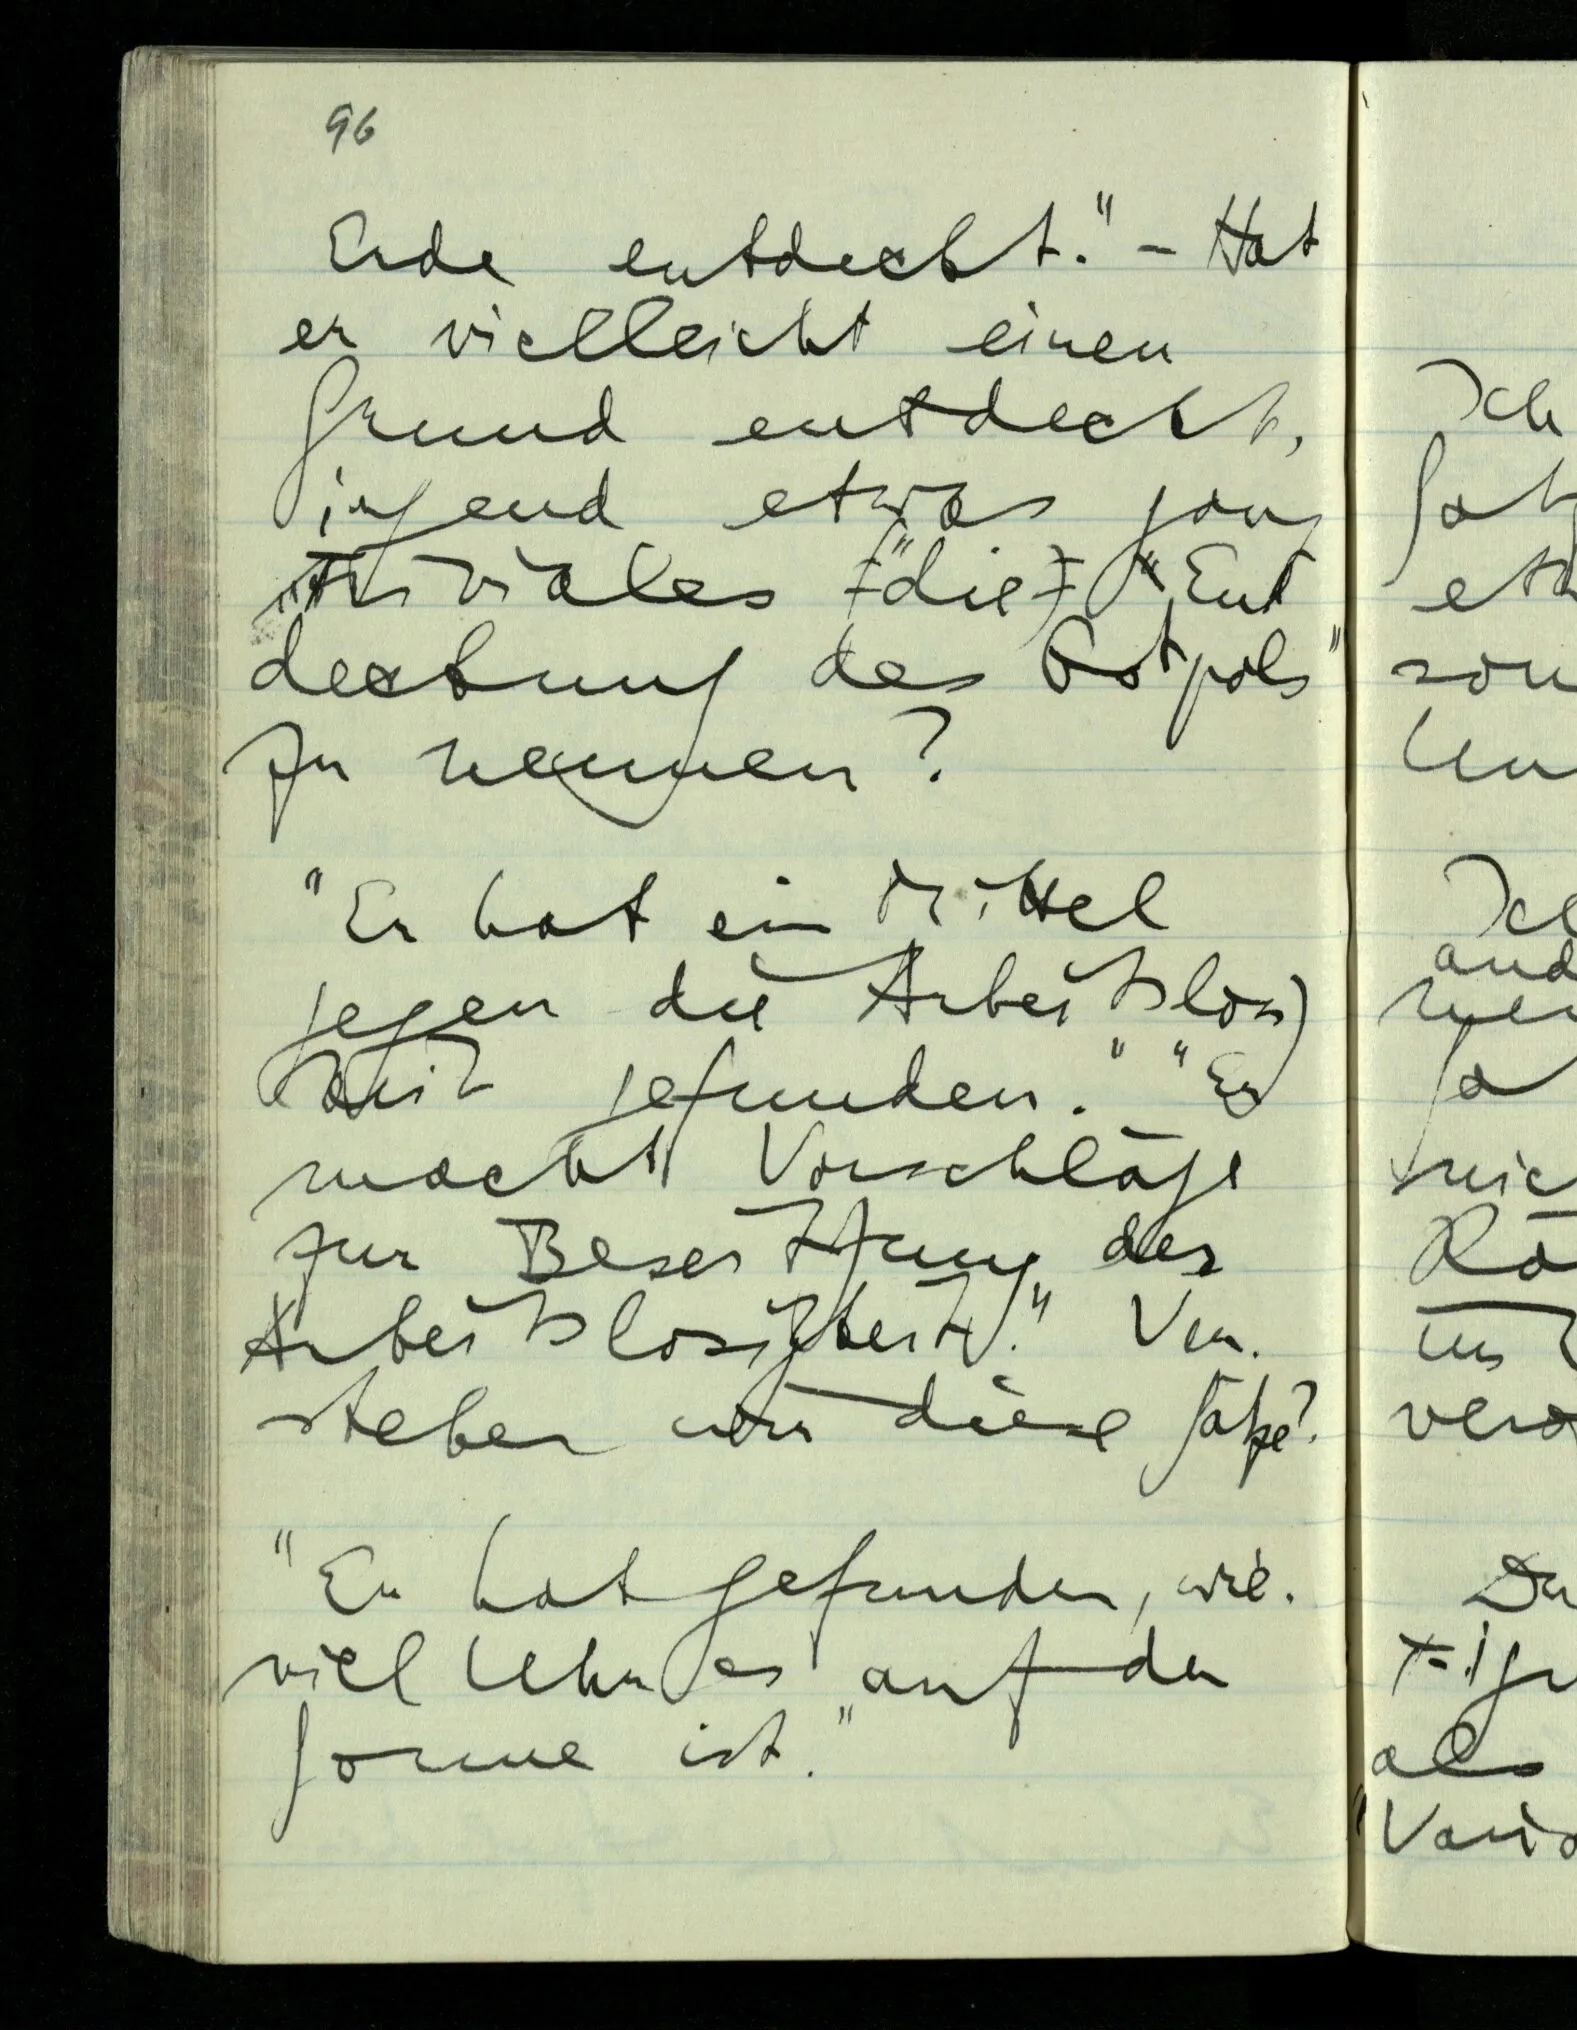 96
Erde entdeckt." – Hat
er vielleicht einen
Grund entdeckt,
irgend etwas ganz
triviales "die "Ent
deckung des Ostpols"
zu nennen?
"Er hat ein Mittel
gegen die Arbeitslosig
keit gefunden." "Er
macht Vorschläge
zur Beseitigung der
Arbeitslosigkeit." Ver-
stehen wir diese Sätze?
"Er hat gefunden, wie-
viel Uhr es auf der
Sonne ist."
Ich
als